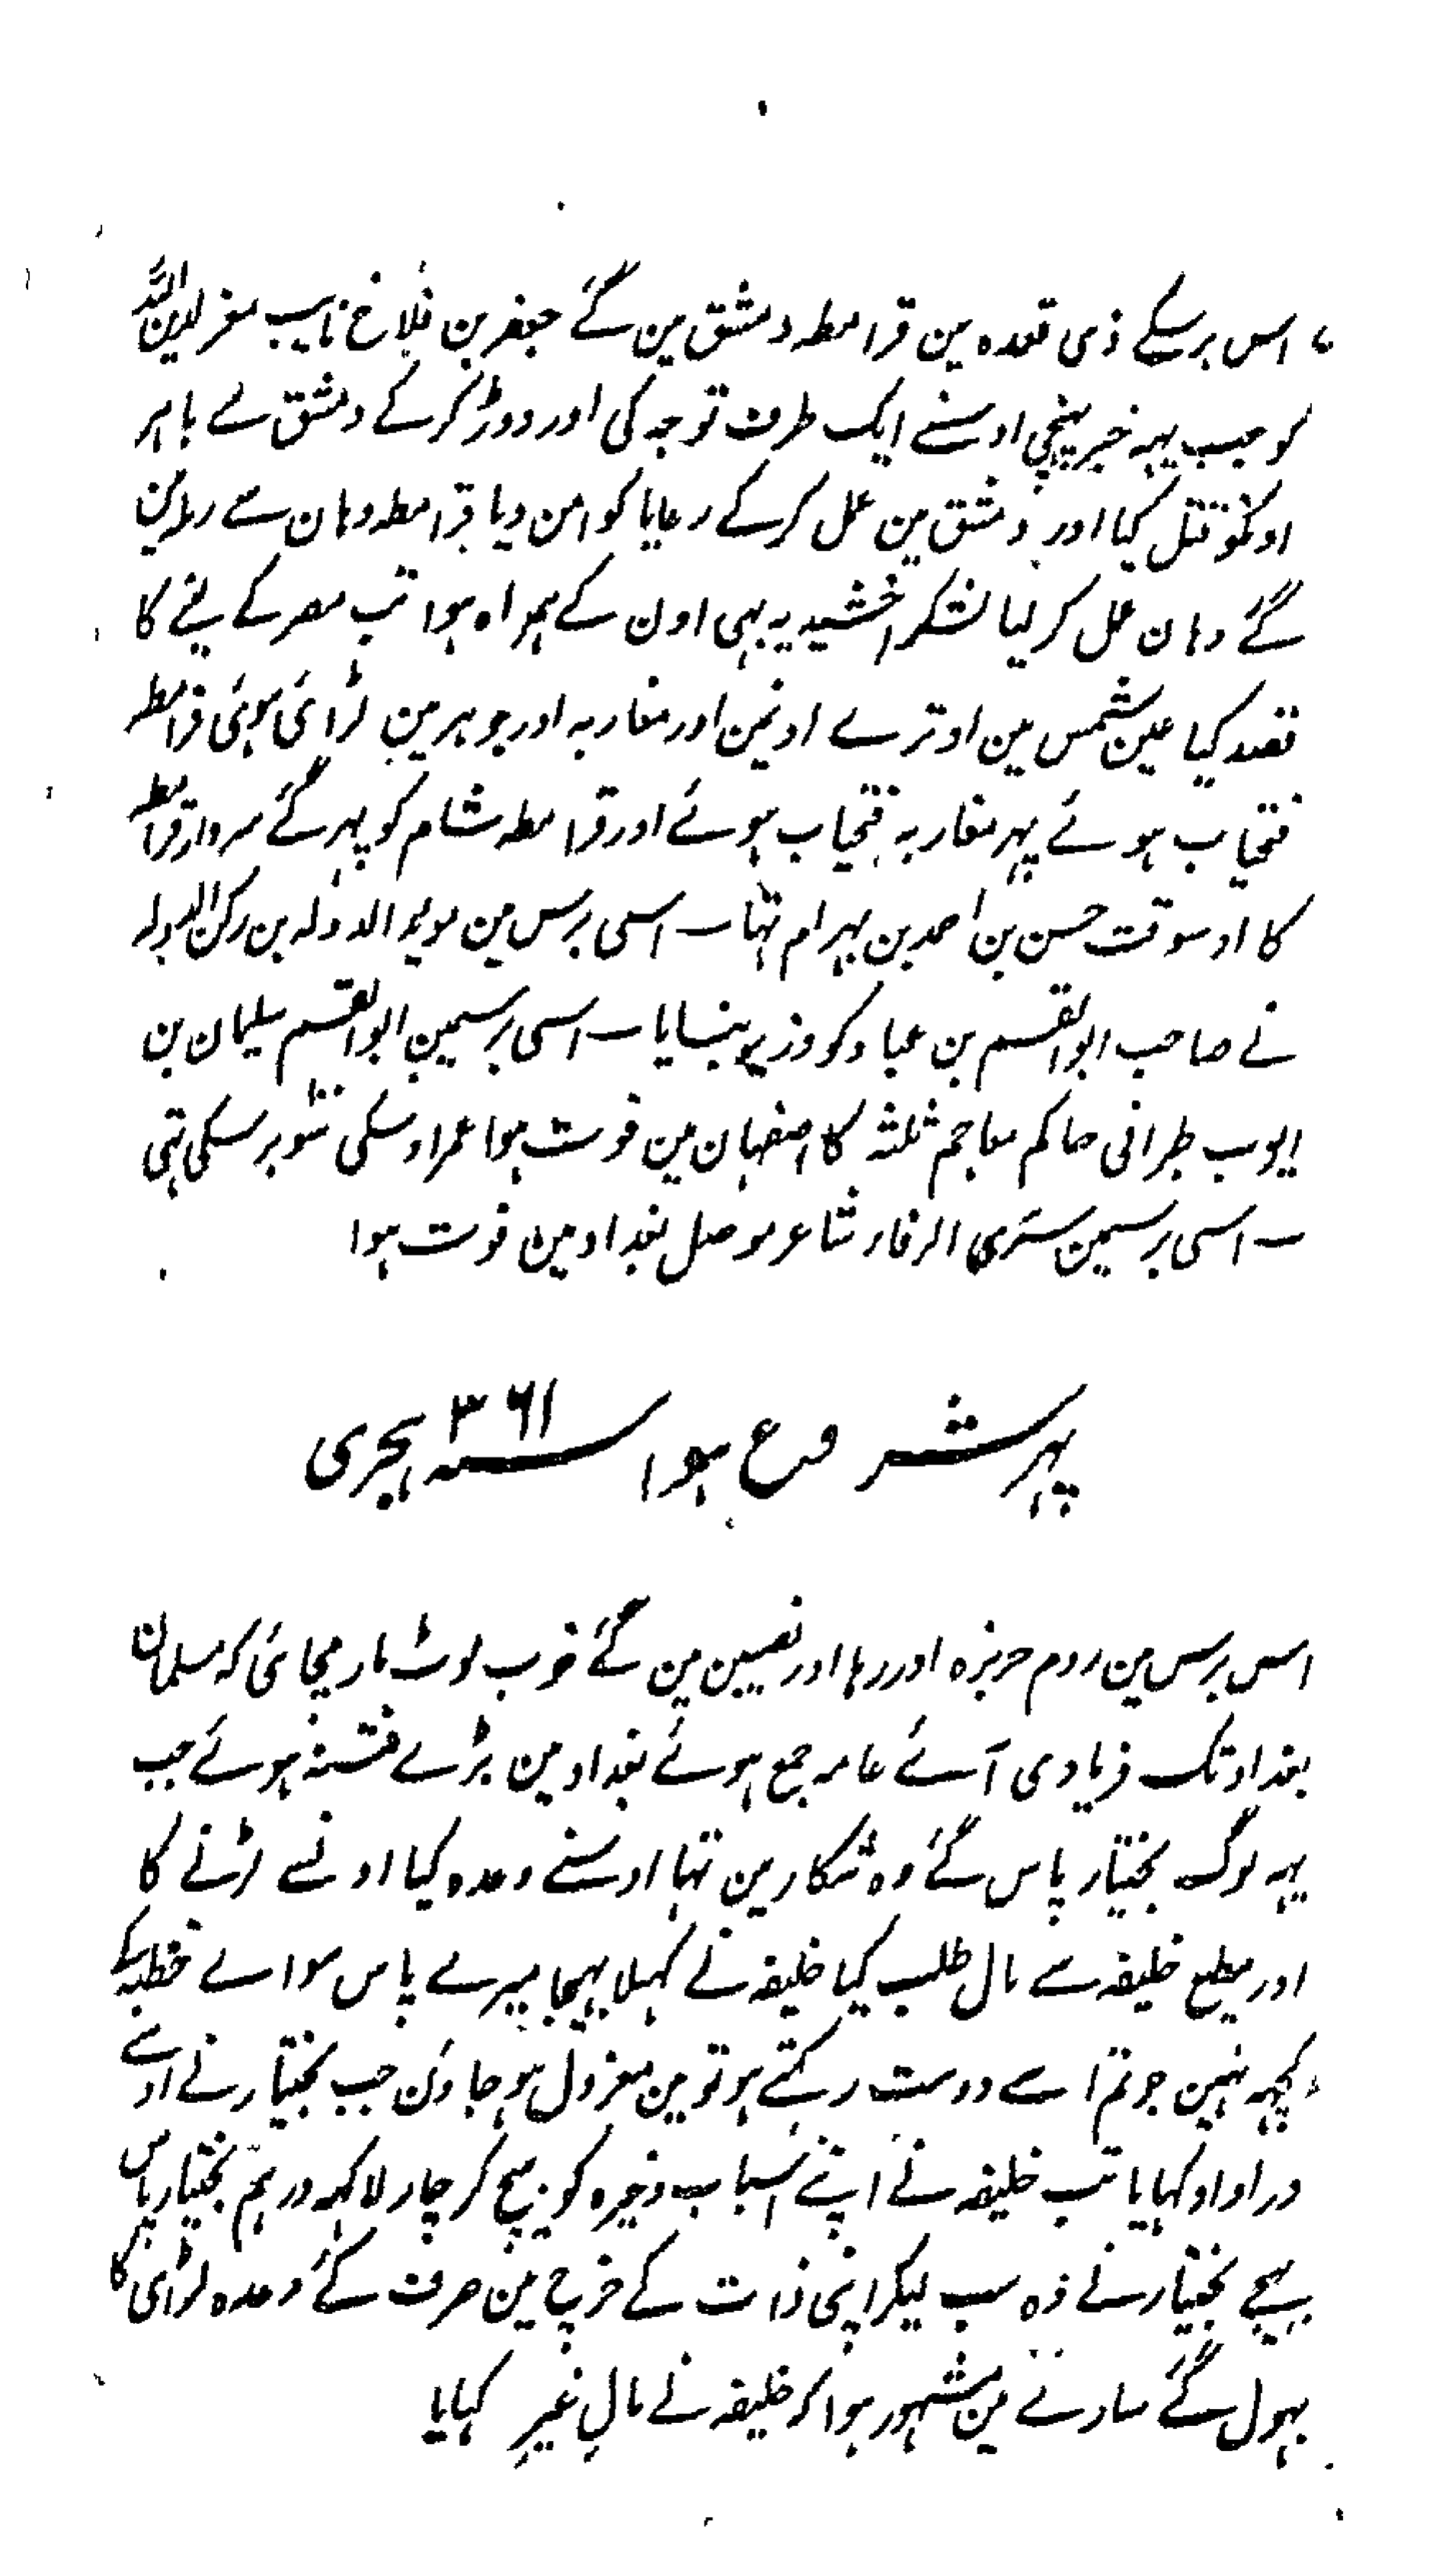 اس برسکے ذی قعدہ مین قرامطہ دمشق مین گئے جعفر بن فلاخ نایب معز لدین اللہ
کو جب یہہ خبر پہنچی اوسنے ایک طرف توجہ کی اور دوڑ کرکے دمشق سے باہر
اونکو قتل کیا اور دمشق مین عمل کرکے رعایا کو امن دیا قرامطہ وہان سے رملہ مین
گئے وہان عمل کر لیا لشکر اخشیدیہ بہی اون کے ہمراہ ہوا تب مصر کے لینے کا
قصد کیا عین شمس مین اوترے اونمین اور مغاربہ اور جوہر مین لڑائی ہوئی قرامطہ
فتحیاب ہوئے پہر مغاربہ فتحیاب ہوئے اور قرامطہ شام کو پہر گئے سردار قرامطہ
کا اوسوقت حسن بن احمد بن بہرام تہا ـ اسی برس مین موید الدولہ بن رکن الدولہ
نے صاحب ابو القسم بن عباد کو وزیر بنایا ـ اسی برسمین ابو القسم سلیمان بن
ایوب طبرانی حاکم معاجم ثلثہ کا اصفہان مین فوت ہوا عمر اوسکی سو برسکی تہی
ـ اسی برسمین سری الرفاء شاعر موصل بغداد مین فوت ہوا
پہر شروع ہوا سنہ ۳۶۱ ہجری
اس برس مین روم جزیرہ اور رہا اور نصیبین مین گئے خوب لوٹ مار مچائی کہ مسلمان
بغداد تک فریادی آئے عامہ جمع ہوئے بغداد مین بڑے فتنہ ہوئے جب
یہہ لوگ بختیار پاس گئے وہ شکار مین تہا اوسنے وعدہ کیا اونسے لڑنے کا
اور مطیع خلیفہ سے مال طلب کیا خلیفہ نے کہلا بہیجا میرے پاس سواے خطبہ کے
کچہہ نہین جو تم اسے دوست رکہتے ہو تو مین معزول ہو جاون جب بختیار نے اوسے
دراوا دکہایا تب خلیفہ نے اپنے اسباب وغیرہ کو بیچ کر چار لاکہہ درہم بختیار پاس
بہیجے بختیار نے وہ سب لیکر اپنی ذات کے خرچ مین صرف کئے وعدہ لڑائی کا
بہول گئے سارے مین مشہور ہوا کہ خلیفہ نے مالِ غیرِ کہایا